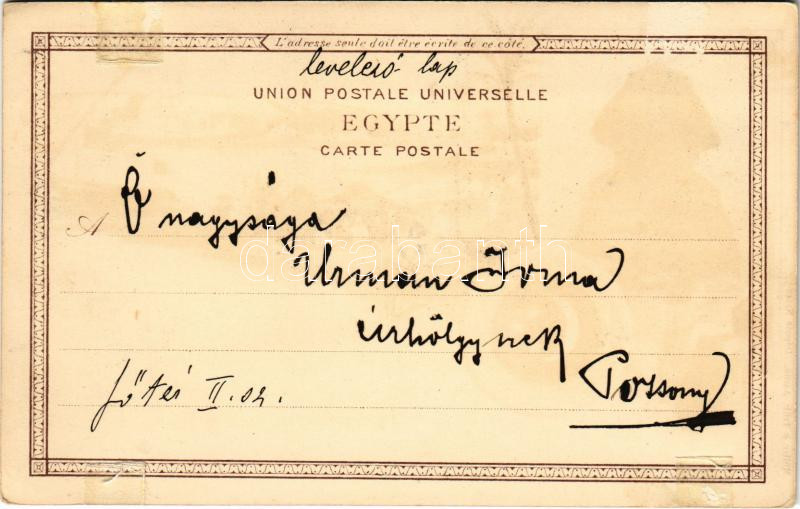 L'adresse seule doit être écrite de ce côté.
levelező lap
UNION POSTALE UNIVERSELLE
EGYPTE
CARTE POSTALE
A Ő nagysága
darabanth
Urman Irma
úrhölgynek
Pozsony
Főtér II. sz.